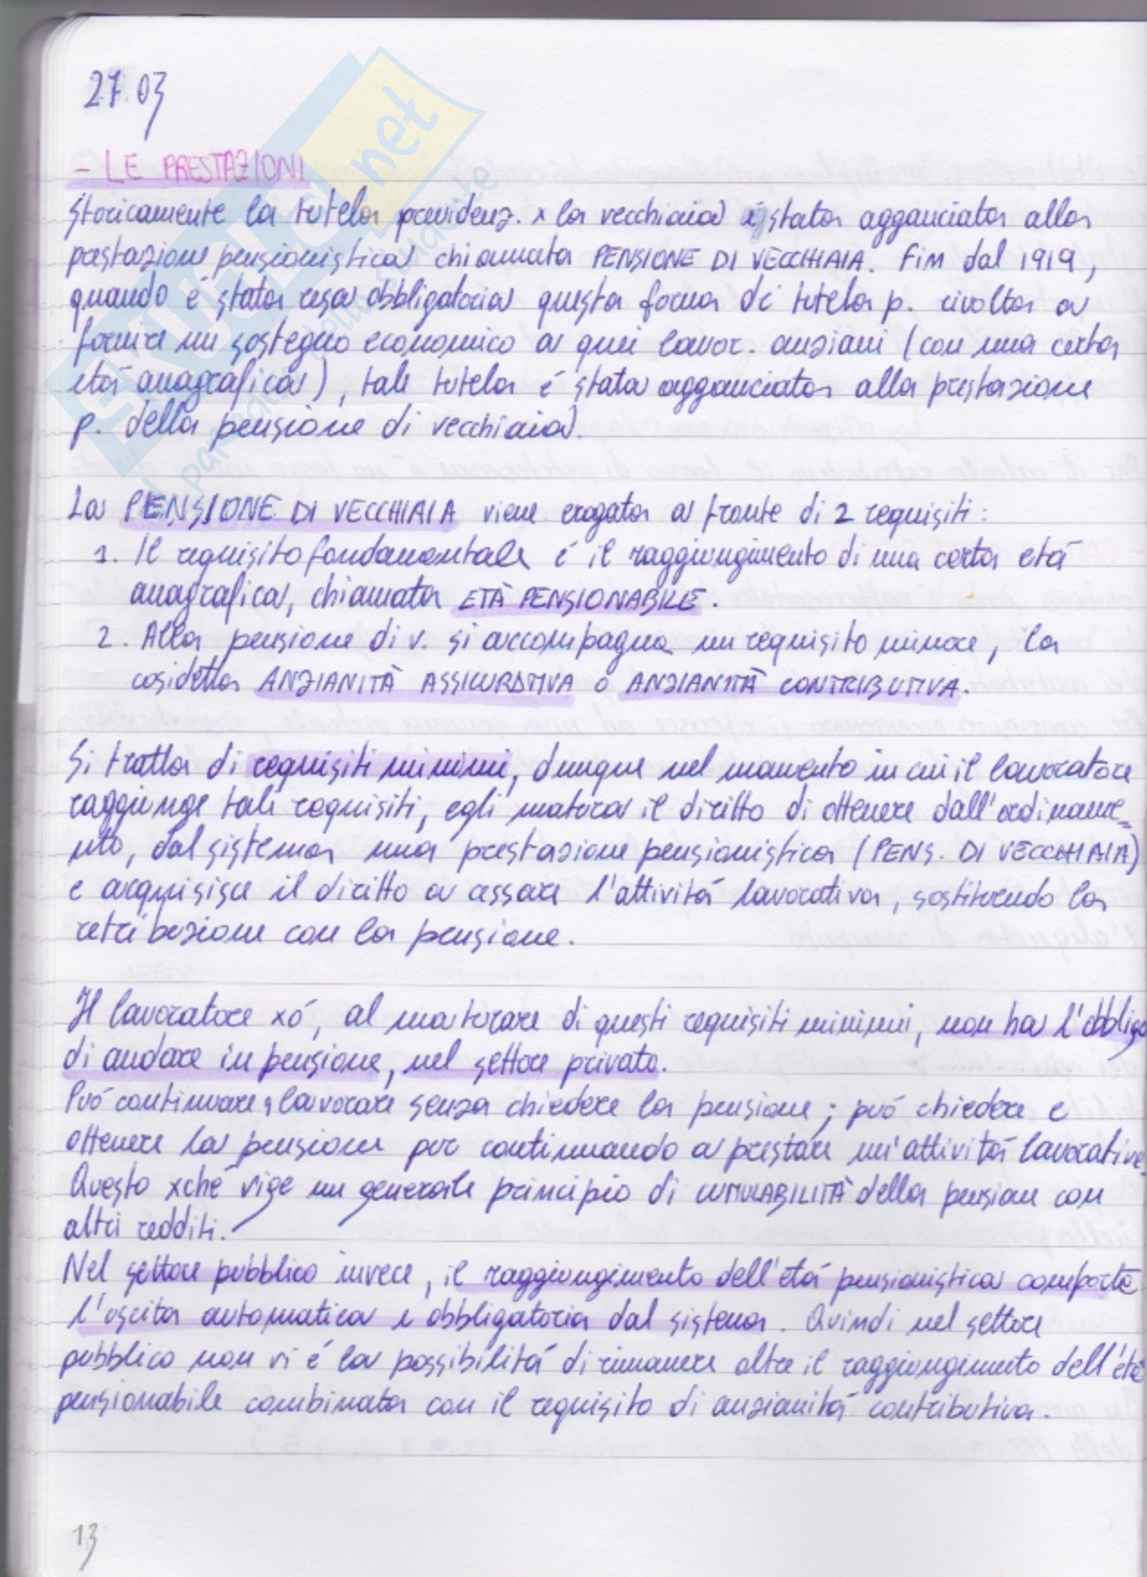 27.03
- LE PRESTAZIONI
Storicamente la tutela previdenz. x la vecchiaia è stata agganciata alla
prestazione pensionistica chiamata PENSIONE DI VECCHIAIA. Fin dal 1919,
quando é stata resa obbligatoria questa forma di tutela p. rivolta a
fornire un sostegno economico a quei lavor. anziani (con una certa
etá anagrafica), tale tutela é stata agganciata alla prestazione
p. della pensione di vecchiaia.
La PENSIONE DI VECCHIAIA viene erogata a fronte di 2 requisiti:
1. Il requisito fondamentale é il raggiungimento di una certa etá
anagrafica, chiamata ETÀ PENSIONABILE.
2. Alla pensione di v. si accompagna un requisito minore, la
cosidetta ANZIANITÀ ASSICURATIVA o ANZIANITÀ CONTRIBUTIVA.
Si tratta di requisiti minimi, dunque nel momento in cui il lavoratore
raggiunge tali requisiti, egli matura il diritto di ottenere dall'ordiname-
nto, dal sistema una prestazione pensionistica (PENS. DI VECCHIAIA)
e acquisisce il diritto a cessare l'attivitá lavorativa, sostituendo la
retribuzione con la pensione.
Il lavoratore xó, al maturare di questi requisiti minimi, non ha l'obbligo
di andare in pensione, nel settore privato.
Puó continuare a lavorare senza chiedere la pensione; puó chiedere e
ottenere la pensione pur continuando a prestare un'attivitá lavorativa
Questo xché vige un generale principio di CUMULABILITÀ della pensione con
altri redditi.
Nel settore pubblico invece, il raggiungimento dell'etá pensionistica comporta
l'uscita automatica e obbligatoria dal sistema. Quindi nel settore
pubblico non vi é la possibilitá di rimanere oltre il raggiungimento dell'etá
pensionabile combinata con il requisito di anzianitá contributiva.
13
net